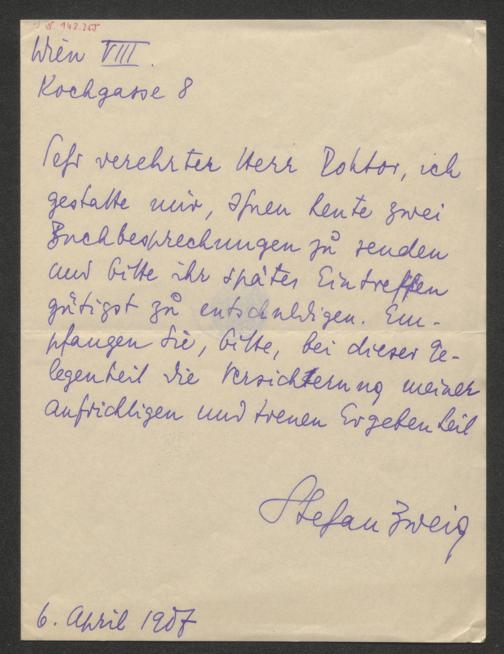 Wien VIII.
Kochgasse 8
Sehr verehrter Herr Doktor, ich
gestatte mir, Ihnen heute zwei
Buchbesprechungen zu senden
und bitte ihr spätes Eintreffen
gütigst zu entschuldigen. Em-
pfangen Sie, bitte, bei dieser Ge-
legenheit die Versicherung meiner
aufrichtigen und treuen Ergebenheit
Stefan Zweig
6. April 1907